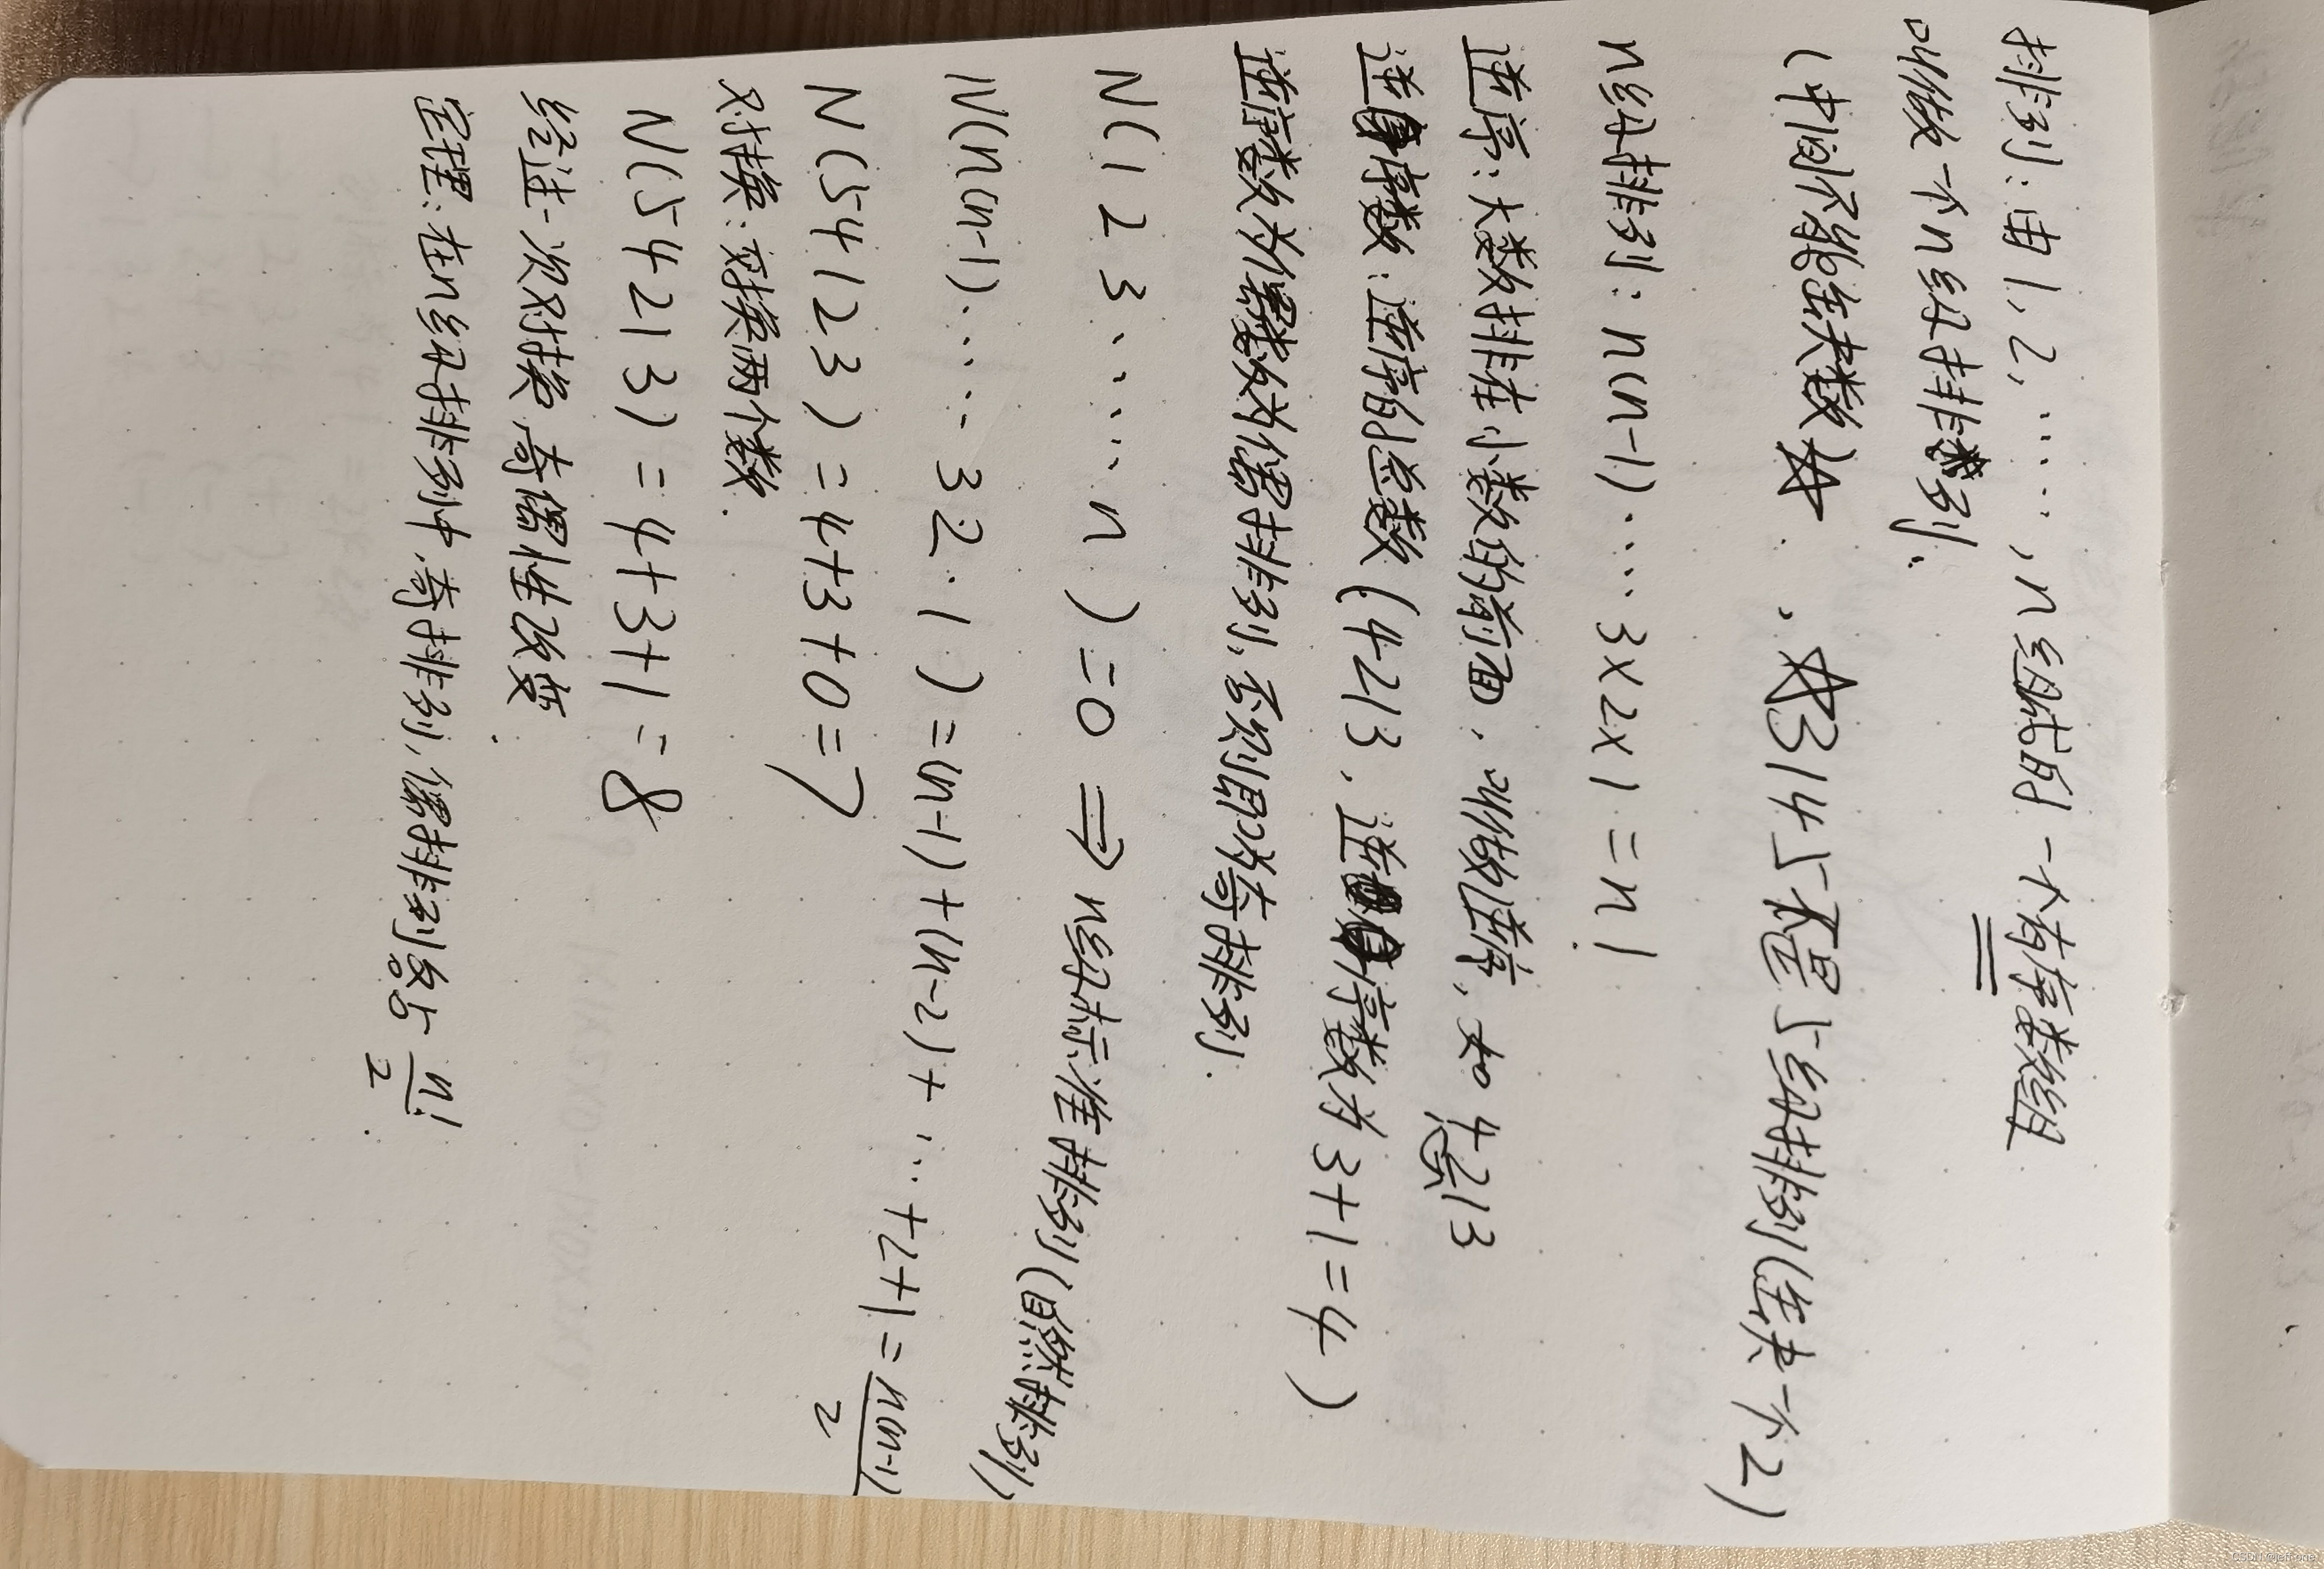 排列:由1,2,……,n组成的一个有序数组
叫做一个n级排列.
(中间不能缺数) 3145不是5级排列(缺失一个2)
n级排列: n(n-1)……3×2×1=n!
逆序:大数排在小数的前面,叫做逆序,如4213
逆序数:逆序的总数(4213,逆序数为3+1=4)
逆序数为偶数为偶排列,否则即为奇排列.
N(1 2 3 …… n)=0 ⇒ n级标准排列(自然排列)
N(n(n-1)……3 2·1)=(n-1)+(n-2)+…+2+1=n(n-1)/2
N(54123)=4+3+0=7
对换:交换两个数.
N(54213)=4+3+1=8
经过一次对换,奇偶性改变.
定理:在n级排列中,奇排列,偶排列各占n!/2.
CSDN @jeff one